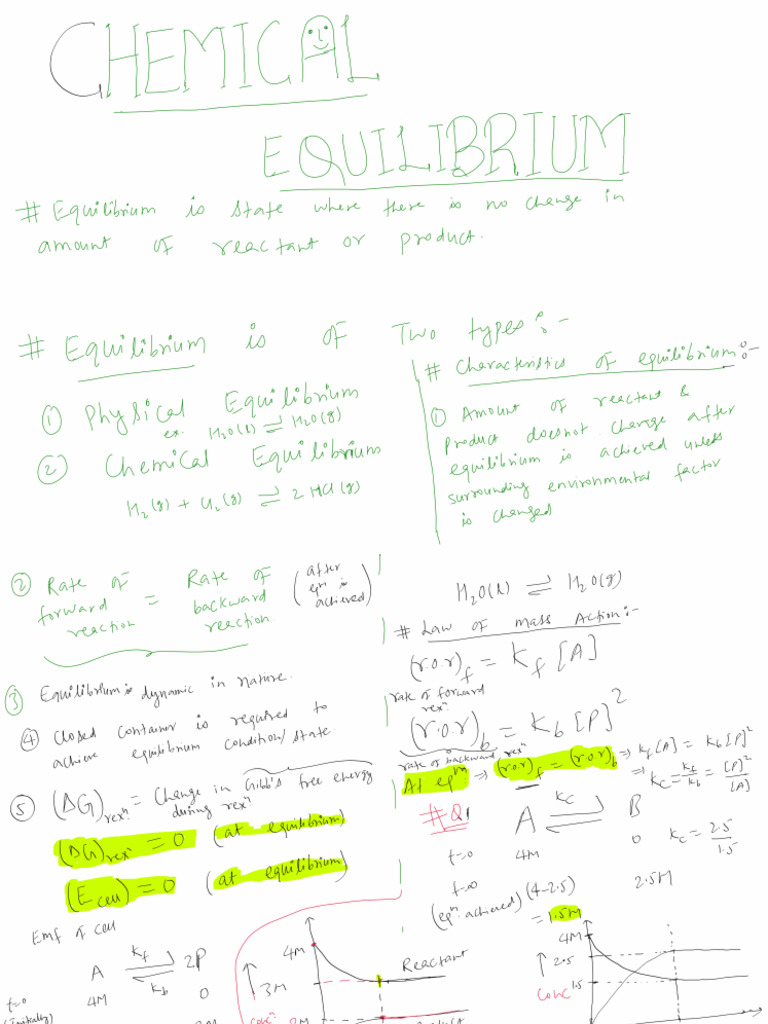 CHEMICAL
EQUILIBRIUM
# Equilibrium is state where there is no change in
amount of reactant or product.
# Equilibrium is of Two types:-
① Physical Equilibrium
ex. H2O(l) ⇌ H2O(g)
② Chemical Equilibrium
H2(g) + Cl2(g) ⇌ 2 HCl(g)
# Characteristics of equilibrium:-
① Amount of reactant &
product doesnot change after
equilibrium is achieved unless
surrounding environmental factor
is changed
② Rate of forward reaction = Rate of backward reaction. (after eqn is achieved)
③ Equilibrium is dynamic in nature.
④ Closed container is required to
achieve equilibrium condition/state.
⑤ (ΔG)rexn = Change in Gibb's free energy
during rexn
(ΔG)rexn = 0 (at equilibrium)
(E cell) = 0 (at equilibrium)
Emf of cell
A ⇌ 2P
kf
kb
t=0 4M 0
(initially)
H2O(l) ⇌ H2O(g)
# Law of mass Action:-
(r.o.r)f = Kf [A]
rate of forward
rexn
(r.o.r)b = Kb [P]²
rate of backward rexn
At eqm ⇒ (r.o.r)f = (r.o.r)b ⇒ Kf[A] = Kb[P]²
⇒ Kc = Kf/Kb = [P]²/[A]
#Q1
A ⇌ B
Kc
t=0 4M 0
Kc = 2.5/1.5
t=∞ (4-2.5) 2.5M
(eqn. achieved) = 1.5M
4M
3M
Reactant
conc
4M
2.5
1.5
conc